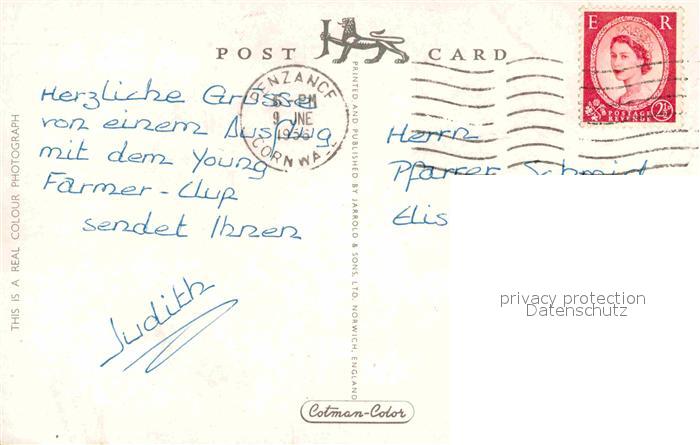 POST CARD
E R
POSTAGE
REVENUE
2½D
PENZANCE
PM
9 JNE
CORNWA
Herzliche Grüsse
von einem Ausflug
mit dem Young
Farmer-Clup
sendet Ihnen
Judith
Herrn
Pfarrer Schmid
Elis
THIS IS A REAL COLOUR PHOTOGRAPH
PRINTED AND PUBLISHED BY JARROLD & SONS, LTD. NORWICH, ENGLAND
privacy protection
Datenschutz
Cotman-Color